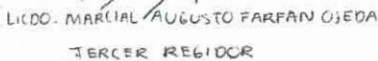 LICDO. MARCIAL AUGUSTO FARFAN OJEDA
TERCER REGIDOR